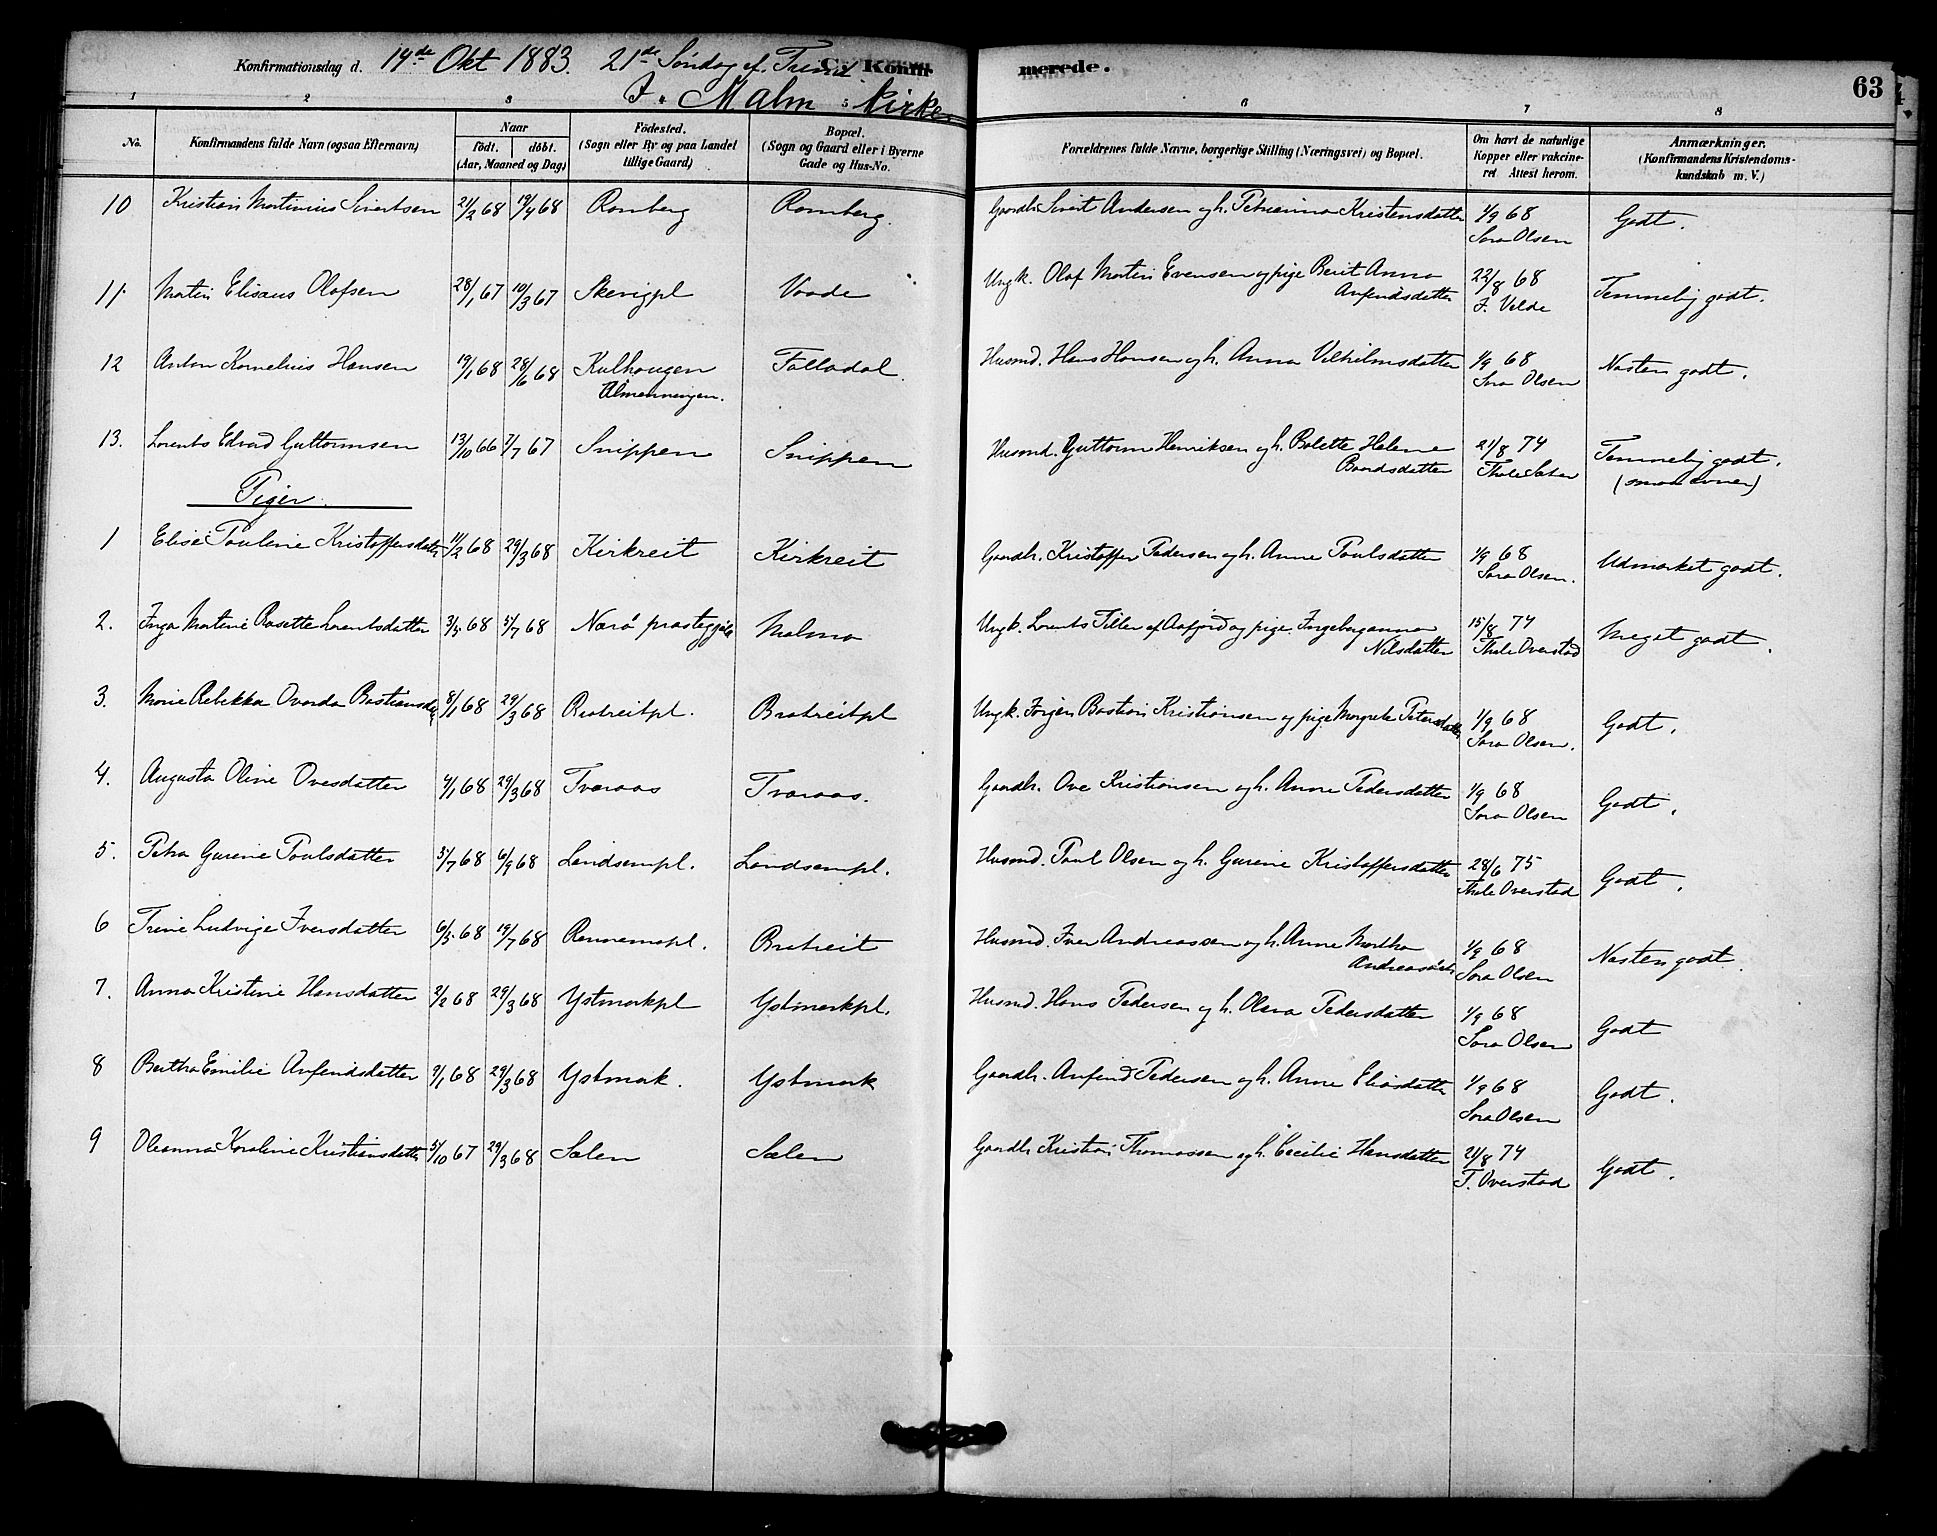 Konfirmationsdag d. 14de Okt 1883. 21de Søndag ef. Trinit C. Konfirmerede. 63
I Malm Kirke.
1 2 3 5 6 7 8
No. Konfirmandens fulde Navn (ogsaa Efternavn) Naar födt. döbt. (Aar, Maaned og Dag) Födested. (Sogn eller By og paa Landet tillige Gaard) Bopæl. (Sogn og Gaard eller i Byerne Gade og Hus-No. Forældrenes fulde Navne, borgerlige Stilling (Næringsvei) og Bopæl. Om havt de naturlige Kopper eller vakcineret Attest herom. Anmærkninger. (Konfirmandens Kristendomskundskab m. V.)
10 Kristian Martinius Sivertsen 21/2 68 19/4 68 Romberg Romberg. Gaardb. Sivert Andersen og h. Petrianna Kristensdatter 1/9 68 Godt.
Sara Olsen
11. Martin Elisæus Olafsen 28/1 67 10/3 67 Skevigpl Vaade Ungk. Olaf Martin Evensen og pige Berit Anna 22/8 68 Temmelig godt.
Anfendsdatter J. Velde
12 Anton Kornelius Hansen 19/1 68 28/6 68 Kulhaugen Folladal. Husmd. Hans Hansen og h. Anna Vilhelmsdatter 1/9 68 Næsten godt.
Almenningen. Sara Olsen
13. Lorents Edvard Guttormsen 13/10 66 7/7 67 Snippen Snippen Husmd. Guttorm Henriksen og h. Bolette Helene 21/8 74 Temmelig godt.
Baardsdatter (smaa evner)
Piger.
1 Elise Pauline Kristoffersdatter 11/2 68 29/3 68 Kirkreit Kirkreit Gaardb. Kristoffer Pedersen og h. Anne Paulsdatter 1/9 68 Udmærket godt.
Sara Olsen.
2. Inga Martine Rosette Lorentsdatter 3/5 68 5/7 68 Nærö præstegjeld Malmo Ungk. Lorents Tiller af Aafjord og pige Ingeboranna 15/8 74 Meget godt.
Nilsdatter Thale Overstad
3. Marie Rebekka Ovarda Bastiansdatter 8/1 68 29/3 68 Bratreitpl. Bratreitpl Ungk. Jørgen Bastian Kristiansen og pige Margrete Petersdatter 1/9 68 Godt.
Sara Olsen.
4. Augusta Oline Ovesdatter 4/1 68 29/3 68 Tværaas Tværaas. Gaardb. Ove Kristiansen og h. Anne Pedersdatter 1/9 68 Godt.
Sara Olsen
5. Petra Gurine Paulsdatter 5/7 68 6/9 68 Landsempl. Landsempl. Husmd. Paul Olsen og h. Gurine Kristoffersdatter 28/6 75 Godt.
Thale Overstad
6 Trine Ludvige Iversdatter 6/5 68 19/7 68 Rennemspl. Bratreit Husmd. Iver Andreassen og h. Anne Martha 1/9 68 Næsten godt.
Andreasdatter Sara Olsen
7. Anna Kristine Hansdatter 2/2 68 29/3 68 Ystmarkpl Ystmarkpl. Husmd. Hans Pedersen og h. Olava Pedersdatter 1/9 68 Godt
Sara Olsen
8 Bertha Emilie Anfendsdatter 9/1 68 29/3 68 Ystmark. Ystmark Gaardb. Anfend Pedersen og h. Anne Eliasdatter 1/9 68 Godt.
Sara Olsen
9 Oleanna Karoline Kristiansdatter 5/10 67 29/3 68 Sælen Sælen Gaardb. Kristian Thomassen og h. Cecilie Hansdatter 21/8 74 Godt.
T. Overstad